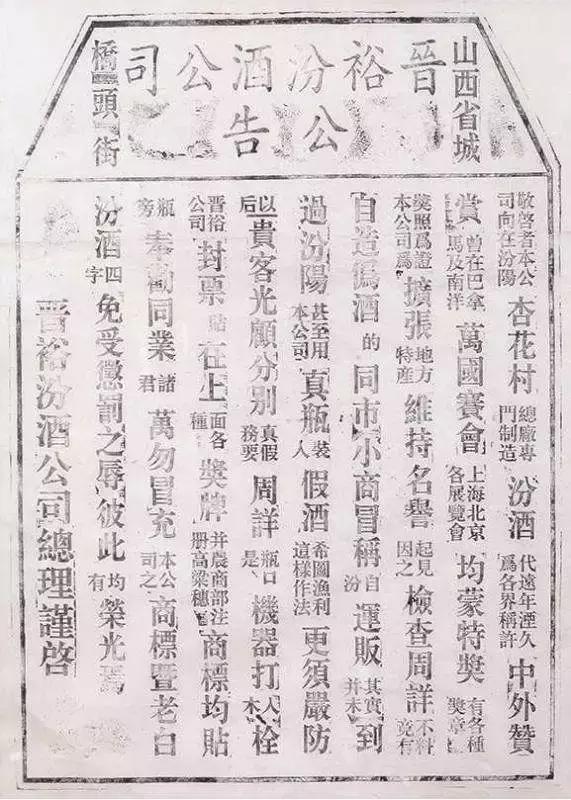 山西省城
晉裕汾酒公司
公告
橋頭街
敬啓者本公司向在汾陽杏花村總廠專門制造汾酒代遠年湮久爲各界稱許中外贊
賞曾在巴拿馬及南洋萬國賽會上海北京各展覽會均蒙特獎有各種獎章
獎照爲證本公司爲擴張地方特産維持名譽起見因之檢查周詳不料竟有
自造僞酒的同市小商冒稱自汾運販其實并未到
過汾陽甚至用本公司真瓶裝入假酒希圖漁利這樣作法更須嚴防
以后貴客光顧分別真假務要周詳瓶口是機器打入木栓
晉裕公司封票貼在上面各種獎牌并農商部注册高粱穗商標均貼
瓶旁奉勸同業諸君萬勿冒充本公司之商標暨老白
汾酒四字免受懲罰之辱彼此均有榮光焉
晉裕汾酒公司總理謹啓